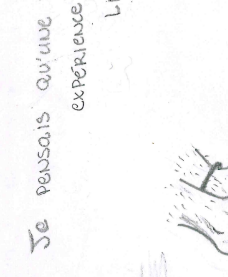 Je pensais qu'une
expérience